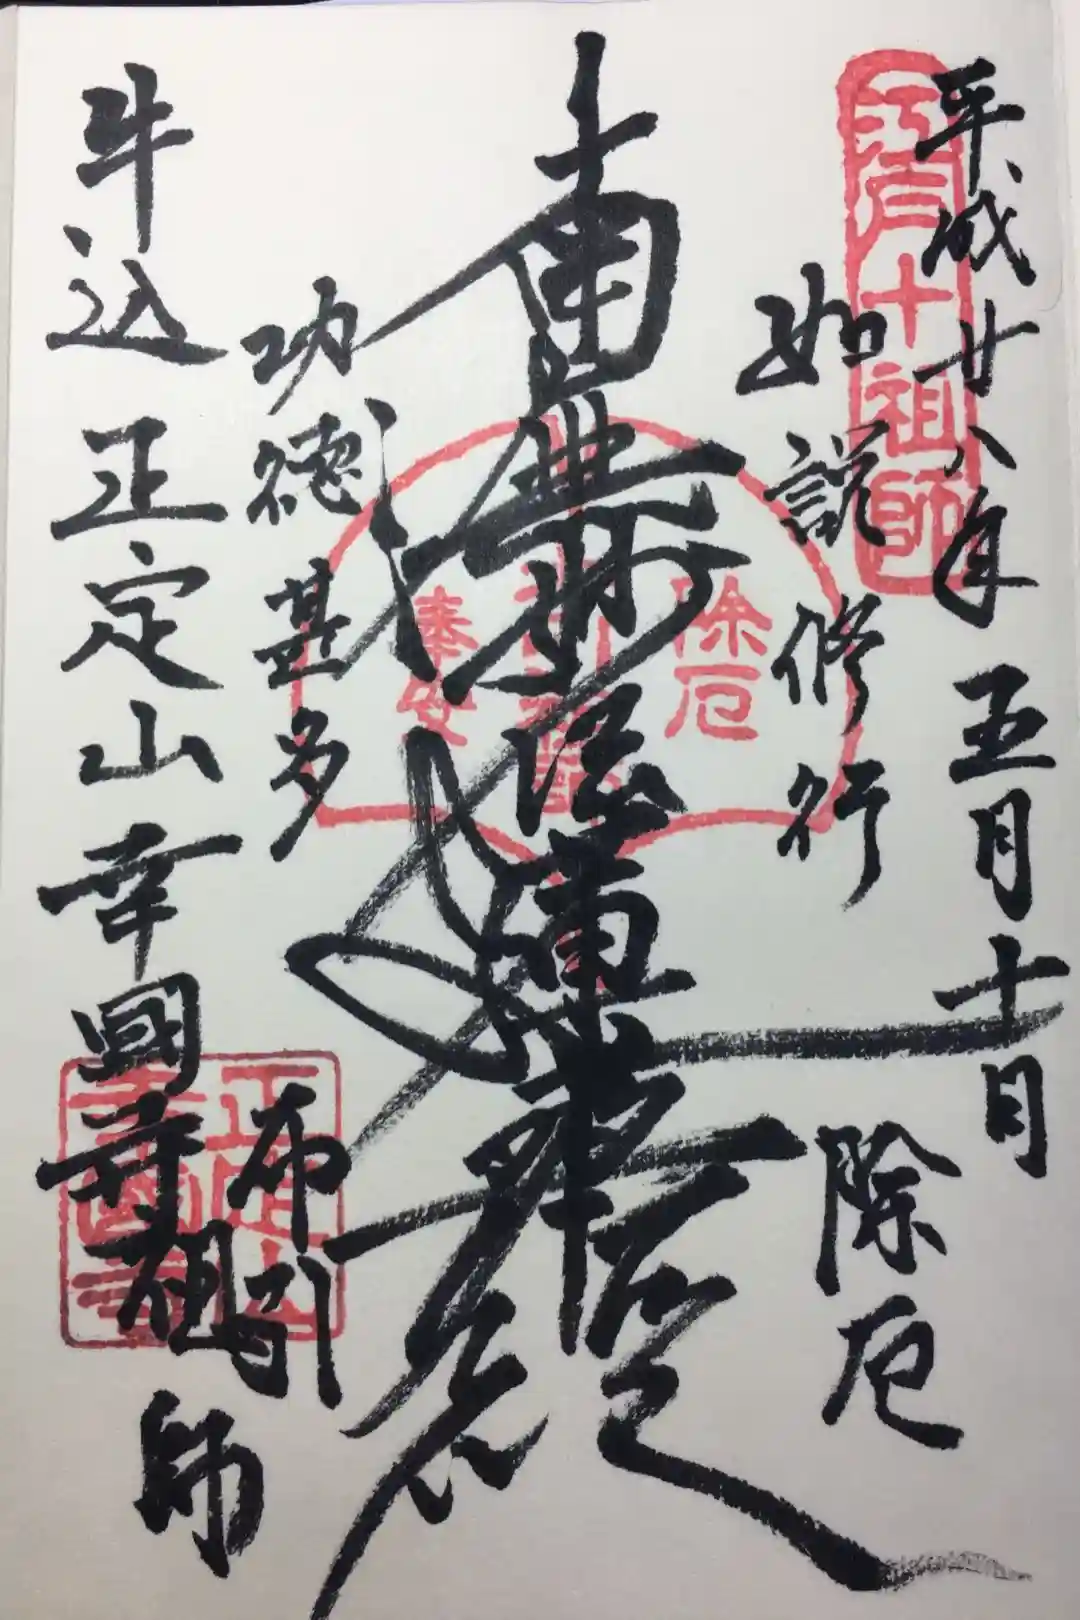 平成廿八年 五月十日
江戸十祖師
如説修行
除厄
南無妙法蓮華経
除厄
布引祖師
奉安
功徳甚多
布引
牛込 正定山幸國寺祖師
正定山
幸國寺